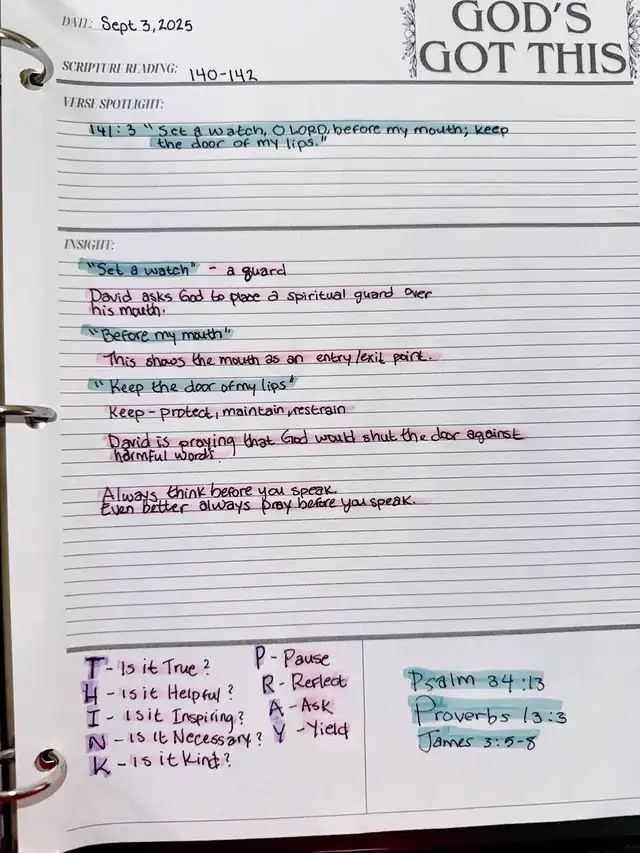 DATE: Sept 3, 2025
GOD'S
GOT THIS
SCRIPTURE READING: 140-142
VERSE SPOTLIGHT:
141:3 "Set a watch, O LORD, before my mouth; keep
the door of my lips."
INSIGHT:
"Set a watch" - a guard
David asks God to place a spiritual guard over
his mouth.
"Before my mouth"
This shows the mouth as an entry/exit point.
"Keep the door of my lips"
Keep - protect, maintain, restrain
David is praying that God would shut the door against
harmful words.
Always think before you speak.
Even better always pray before you speak.
T - Is it True?
H - is it Helpful?
I - Is it Inspiring?
N - Is it Necessary?
K - Is it Kind?
P - Pause
R - Reflect
A - Ask
Y - Yield
Psalm 34:13
Proverbs 13:3
James 3:5-8